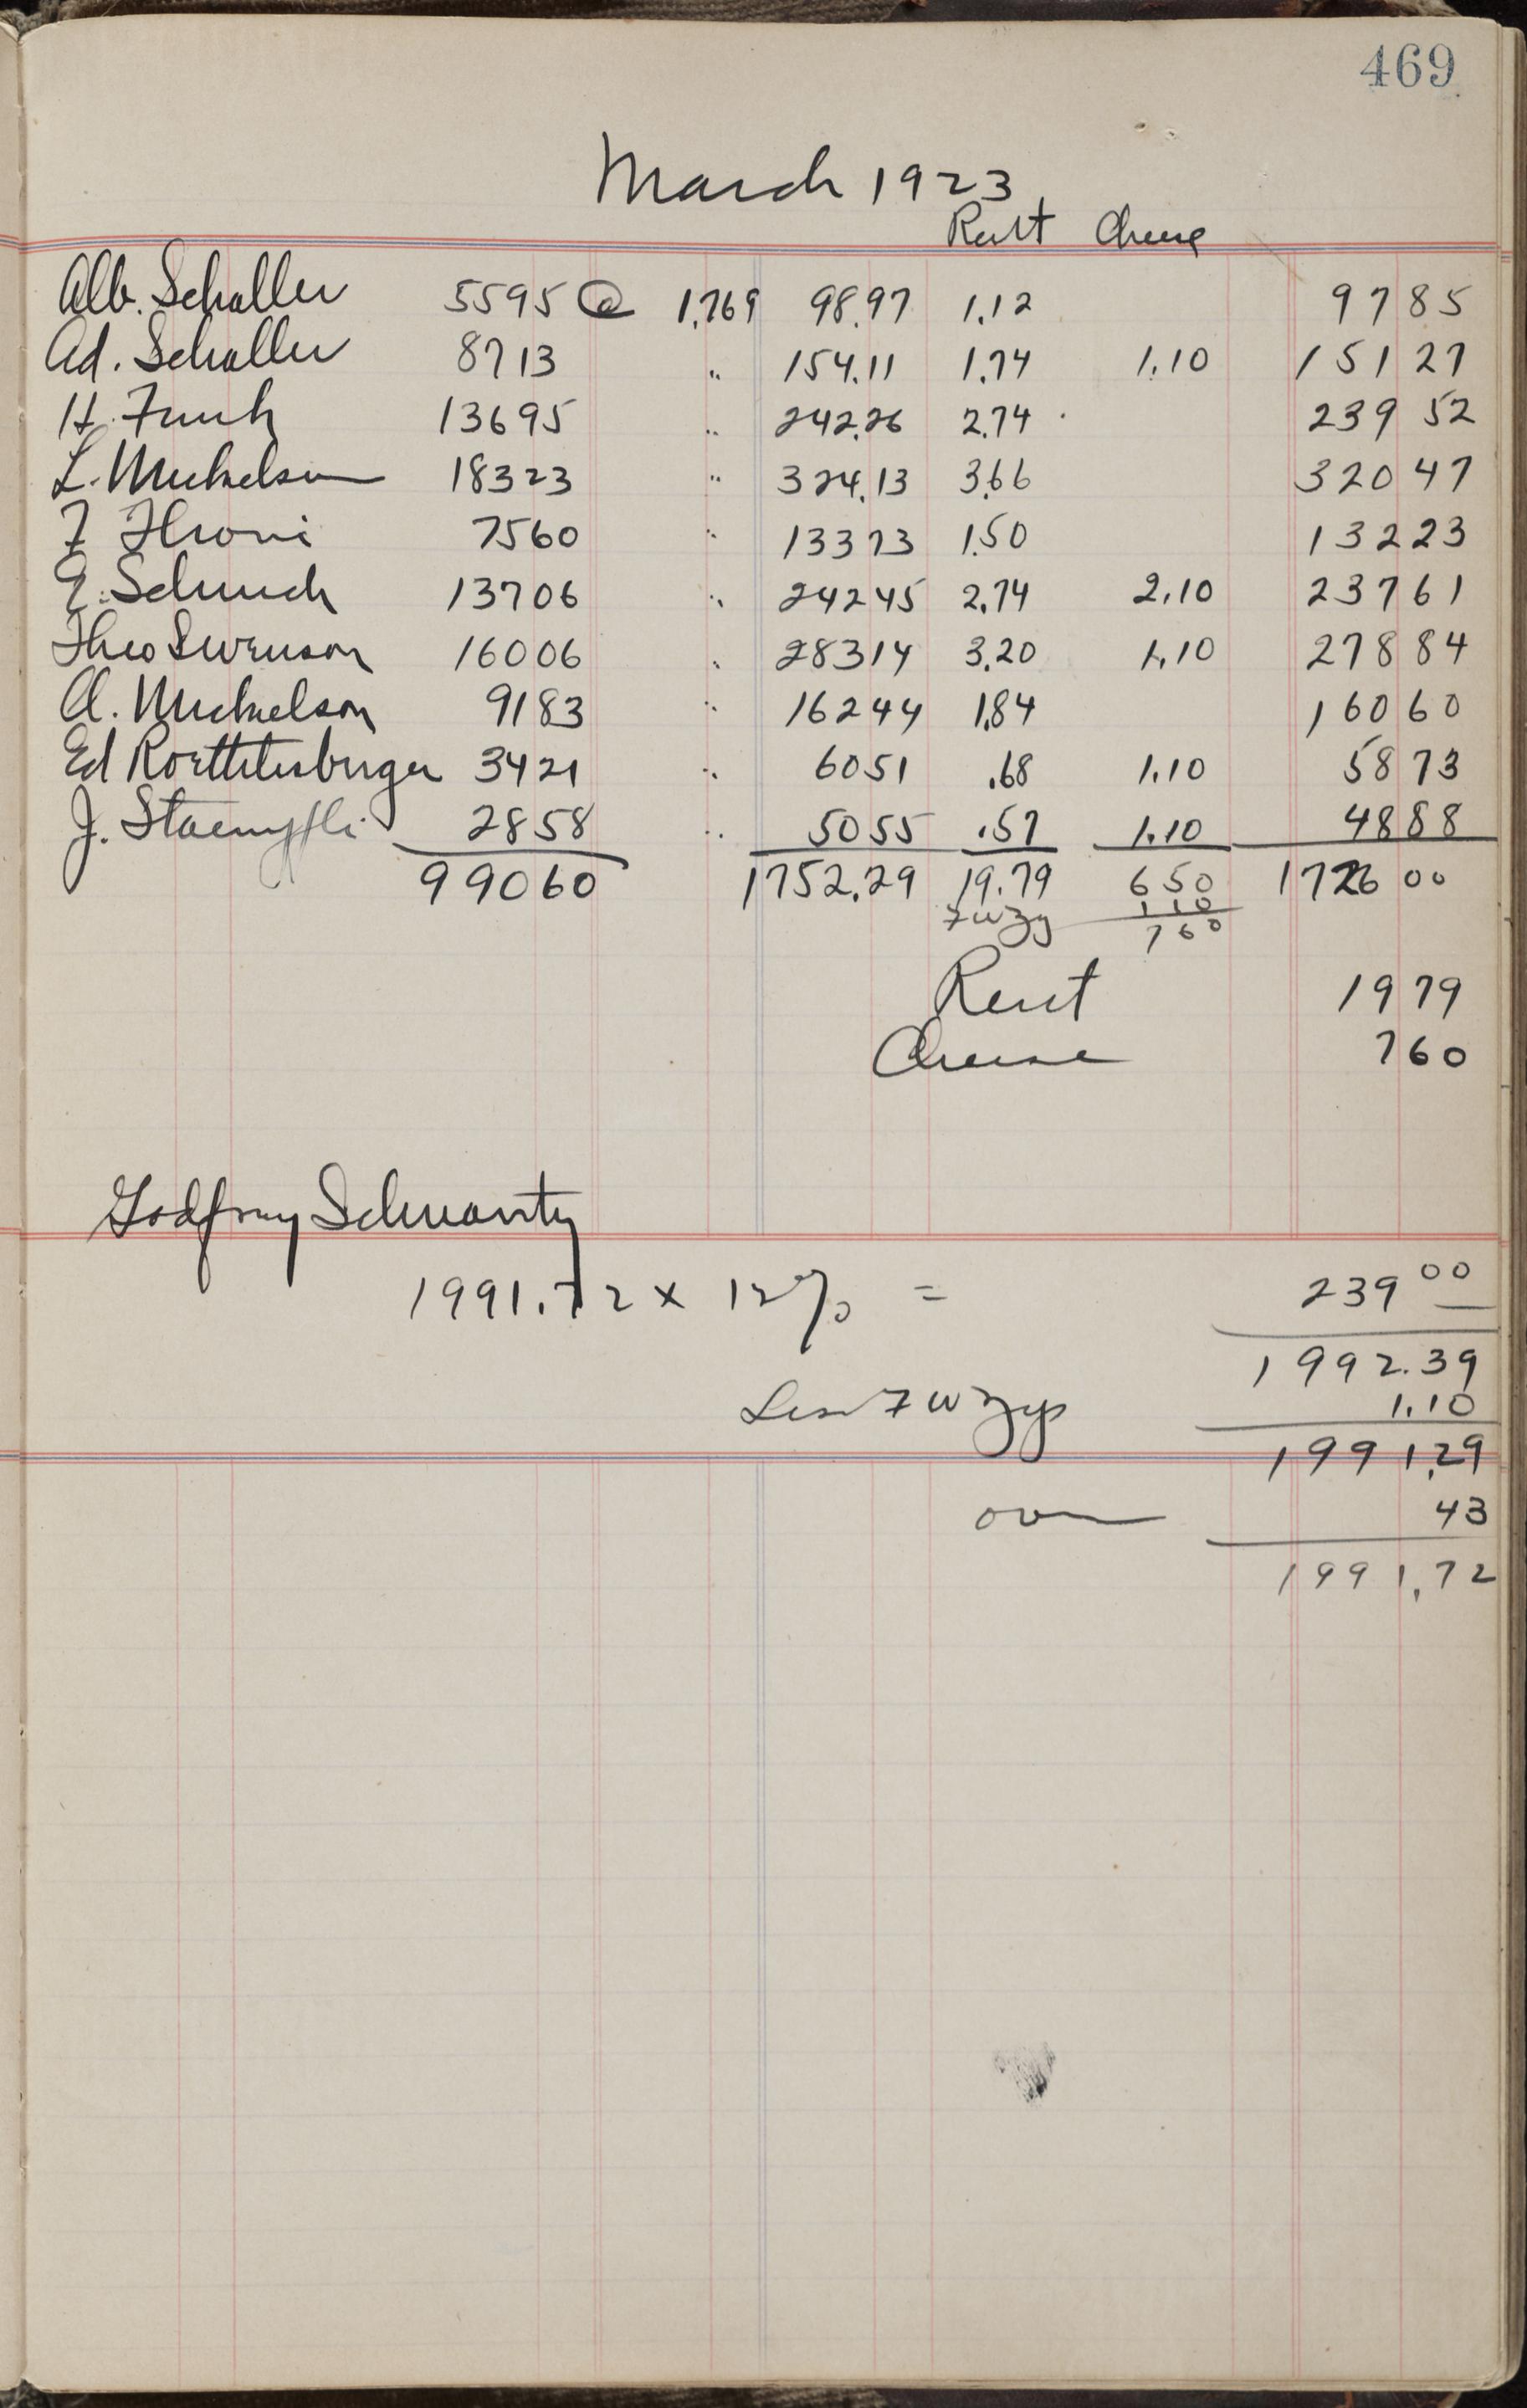 469
March 1923
Rent Cheese
Alb. Schaller 5595 @ 1.769 98.97 1.12 97 85
Ad. Schaller 8713 " 154.11 1.74 1.10 151 27
H. Funk 13695 " 242.26 2.74 239 52
L. Mickelson 18323 " 324.13 3.66 320 47
F 7560 " 133 73 1.50 132 23
E. Schuch 13706 " 242 45 2.74 2.10 237 61
Theo Swenson 16006 " 283 14 3.20 1.10 278 84
A. Mickelson 9183 " 162 44 1.84 160 60
Ed Roethlisberger 3421 " 60 51 .68 1.10 58 73
J. Staempfli 2858 " 50 55 .57 1.10 48 88
99060 1752.29 19.79 6 50 1726 00
1 10
7 60
Rent 19 79
Cheese 7 60
Godfrey Schwantz
1991.72 x 12% = 239 00
1992.39
Less 1.10
1991.29
over 43
1991.72